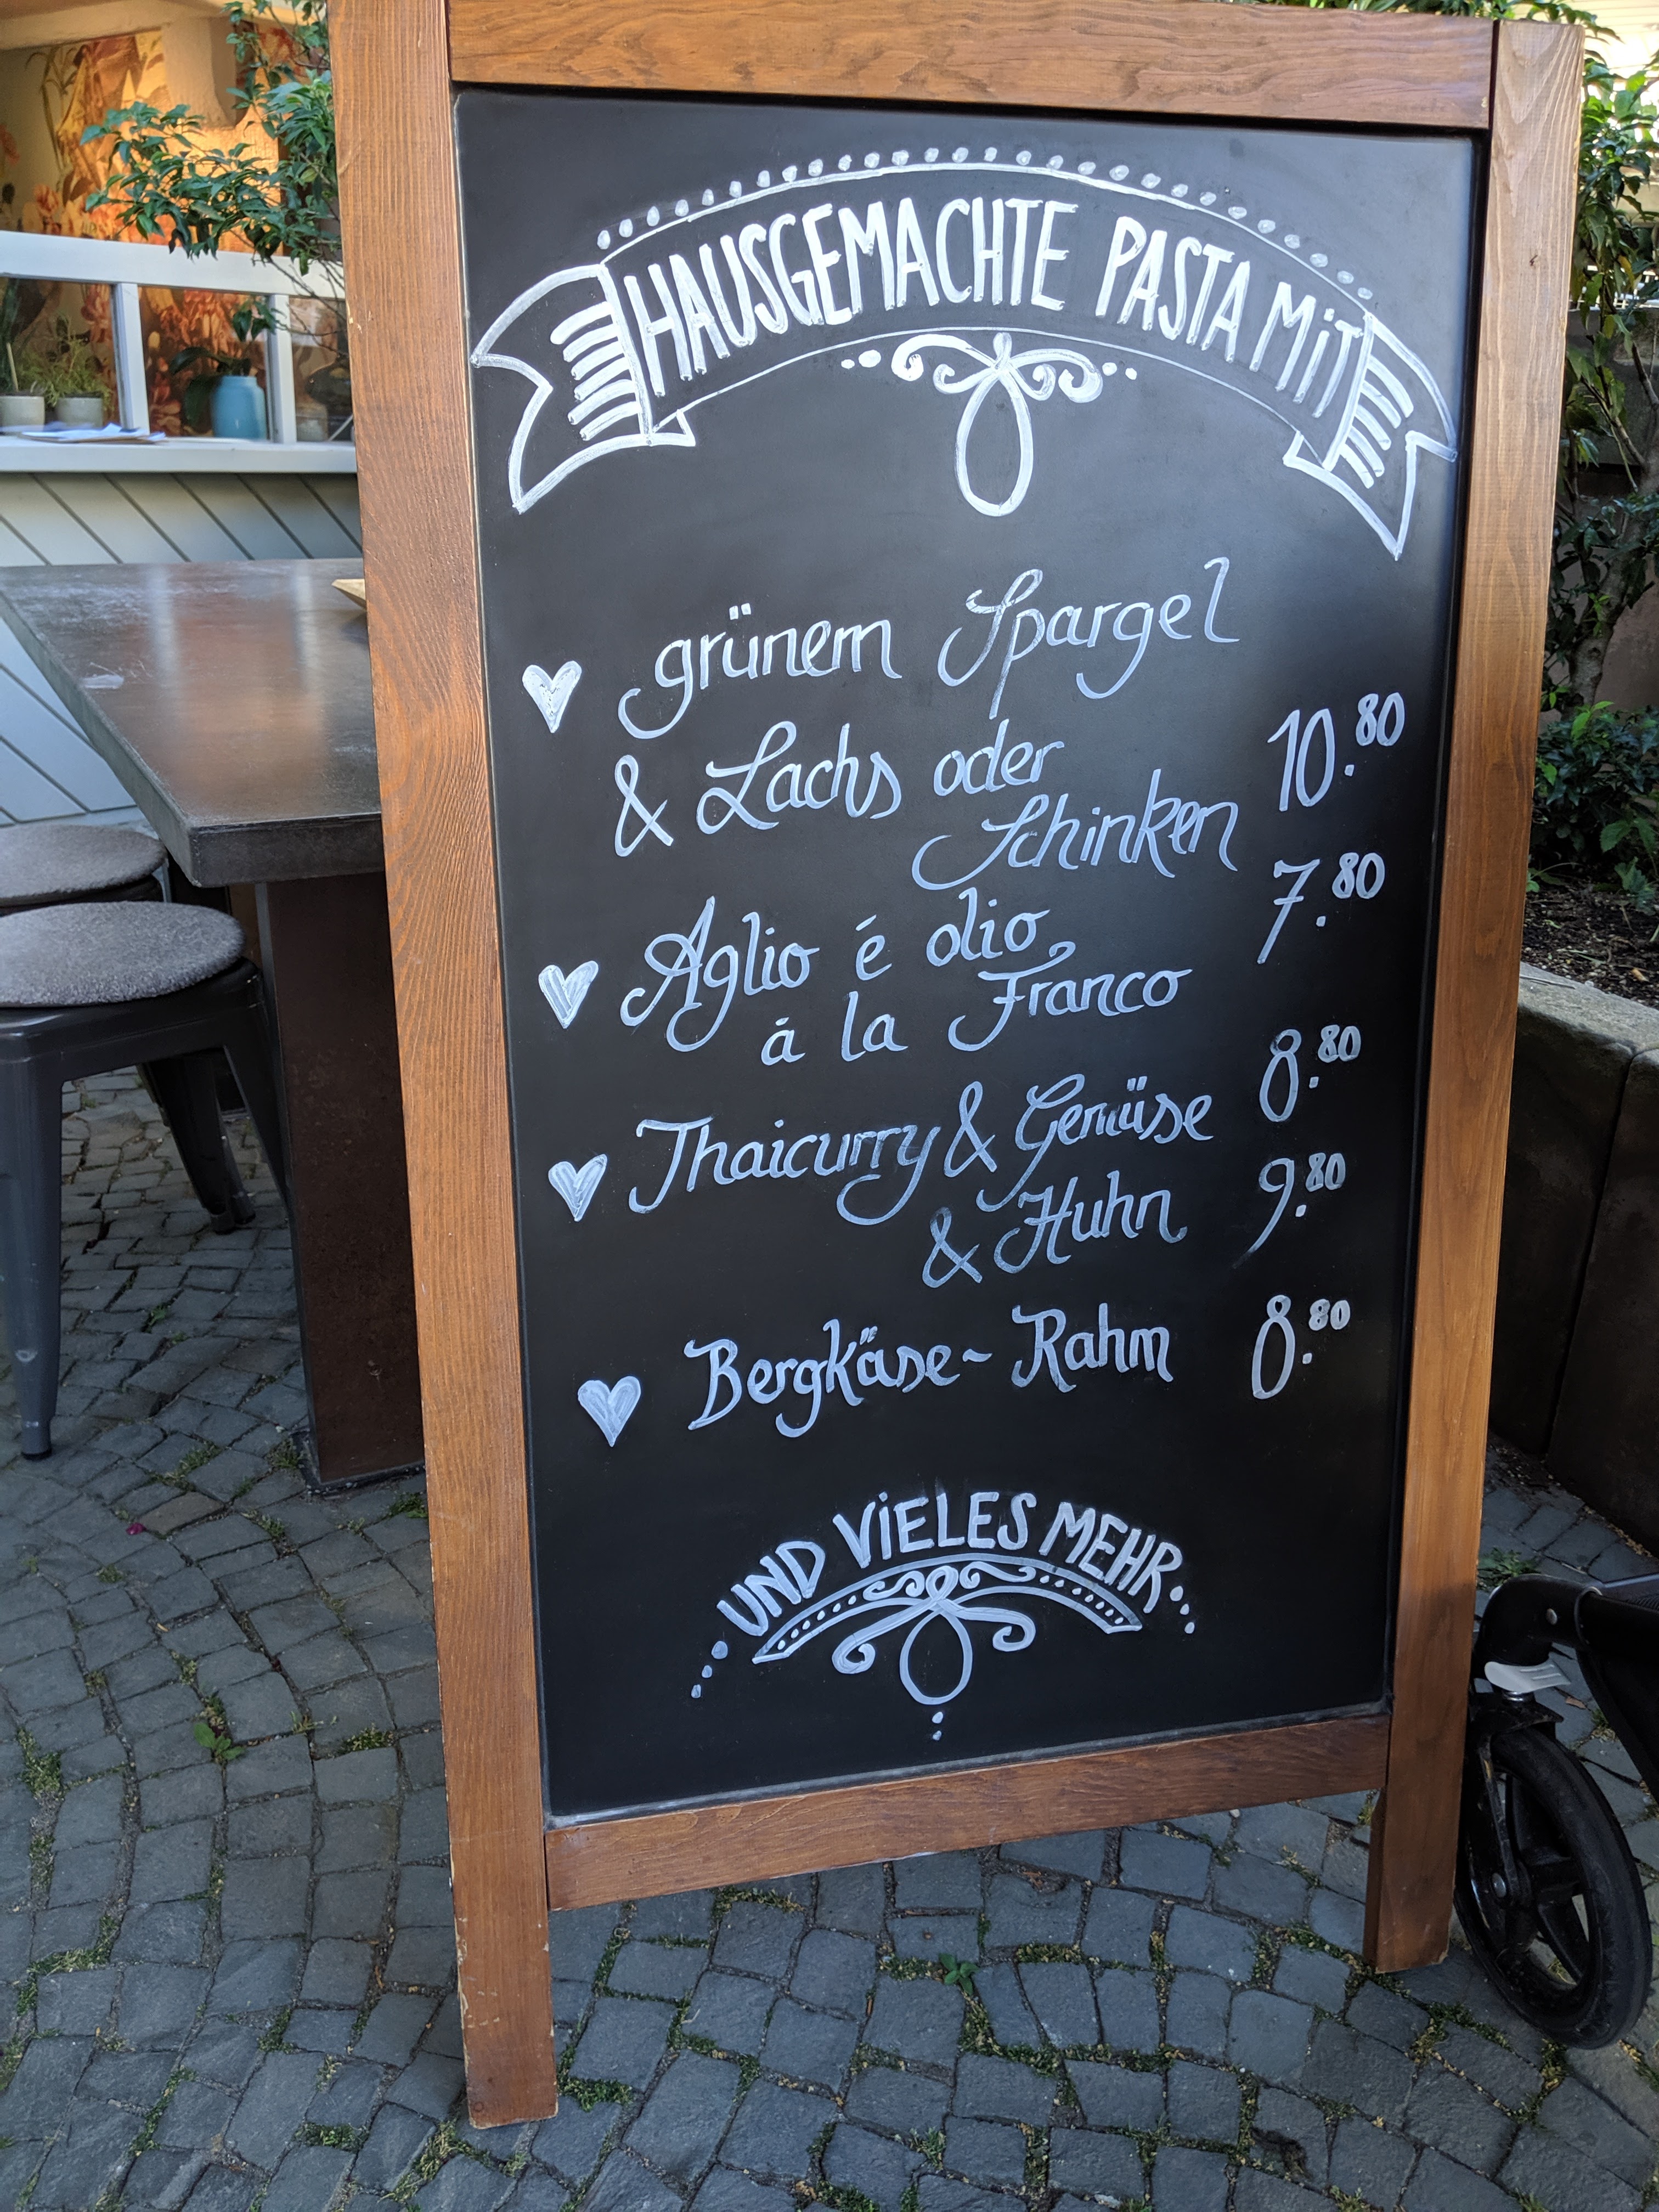 HAUSGEMACHTE PASTA MIT
grünem Spargel
& Lachs oder 10.80
Schinken
Aglio é olio 7.80
á la Franco
Thaicurry & Gemüse 8.80
& Huhn 9.80
Bergkäse- Rahm 8.80
UND VIELES MEHR...